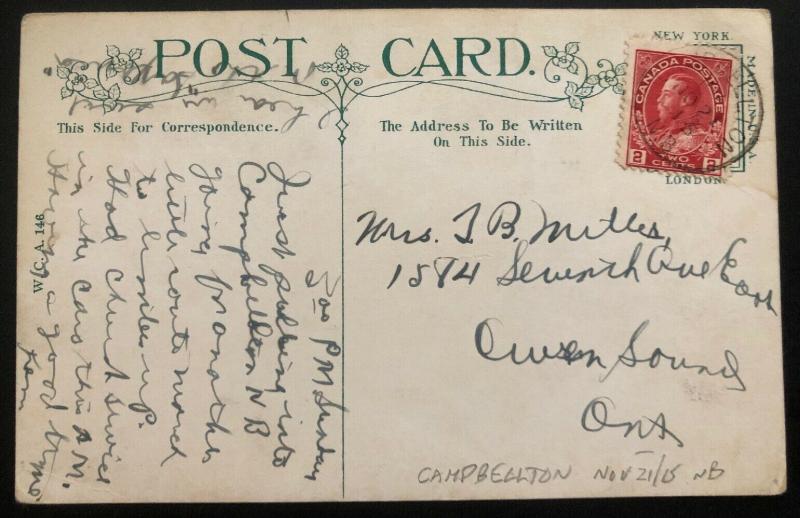 POST CARD.
This Side For Correspondence.
The Address To Be Written
On This Side.
NEW YORK.
LONDON.
CANADA POSTAGE
2 2
TWO
CENTS
W. C. A. 146.
PM Sunday
Just pulling into
Campbellton N B
going for another
little route march
to limber up.
Had church service
in the cars this A M.
Having a good time
Tom
Mrs. T. B. Miller,
1584 Seventh Ave East
Owen Sound
Ont
CAMPBELLTON NOV 21/15 NB